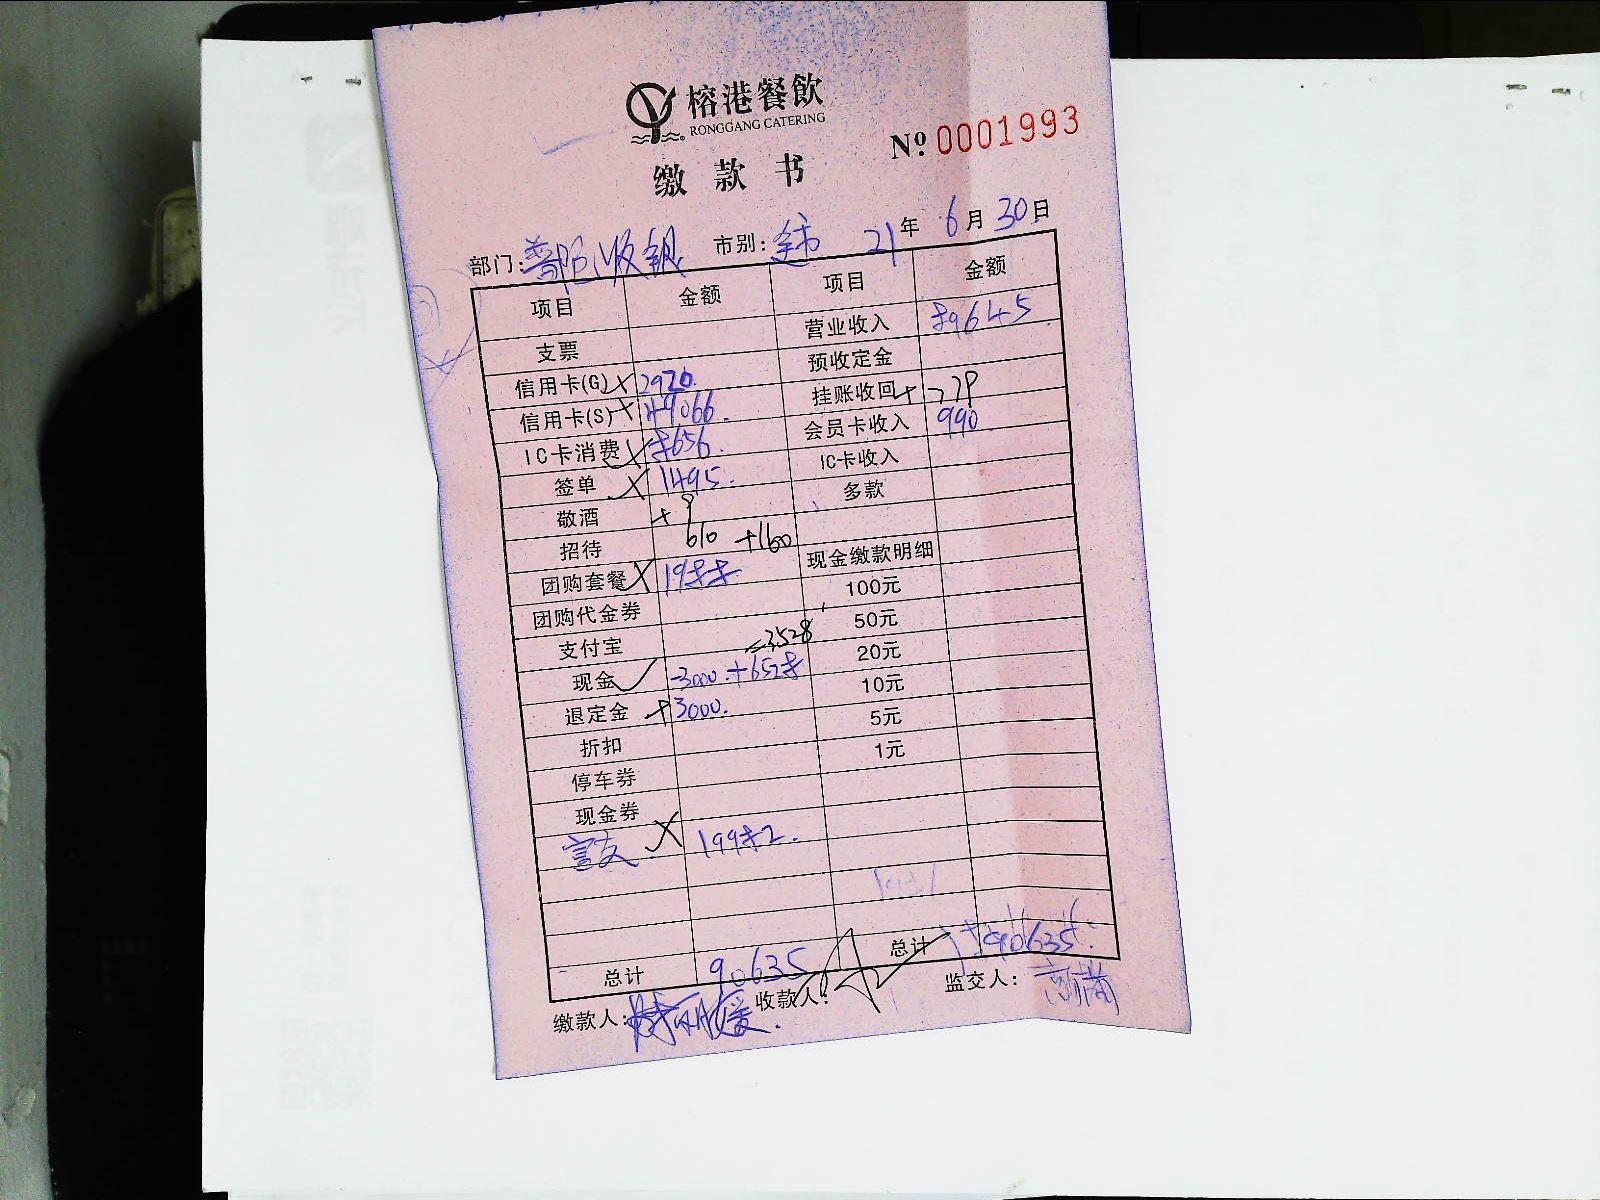 榕港餐飲
RONGGANG CATERING
№ 0001993
缴款书
部门: 收银 市别: 21年 6月 30日
项目 金额 项目 金额
营业收入 89645
支票 预收定金
信用卡(G) 2920. 挂账收回
信用卡(S) 49066. 会员卡收入 990
IC卡消费 8656. IC卡收入
签单 1495. 多款
敬酒
招待 610 +1160 现金缴款明细
团购套餐 1988 100元
团购代金券 50元
支付宝 =3528 20元
现金 -3000.+6528 10元
退定金 3000. 5元
折扣 1元
停车券
现金券
19982.
总计 90635 总计 90635.
缴款人: 收款人: 监交人: